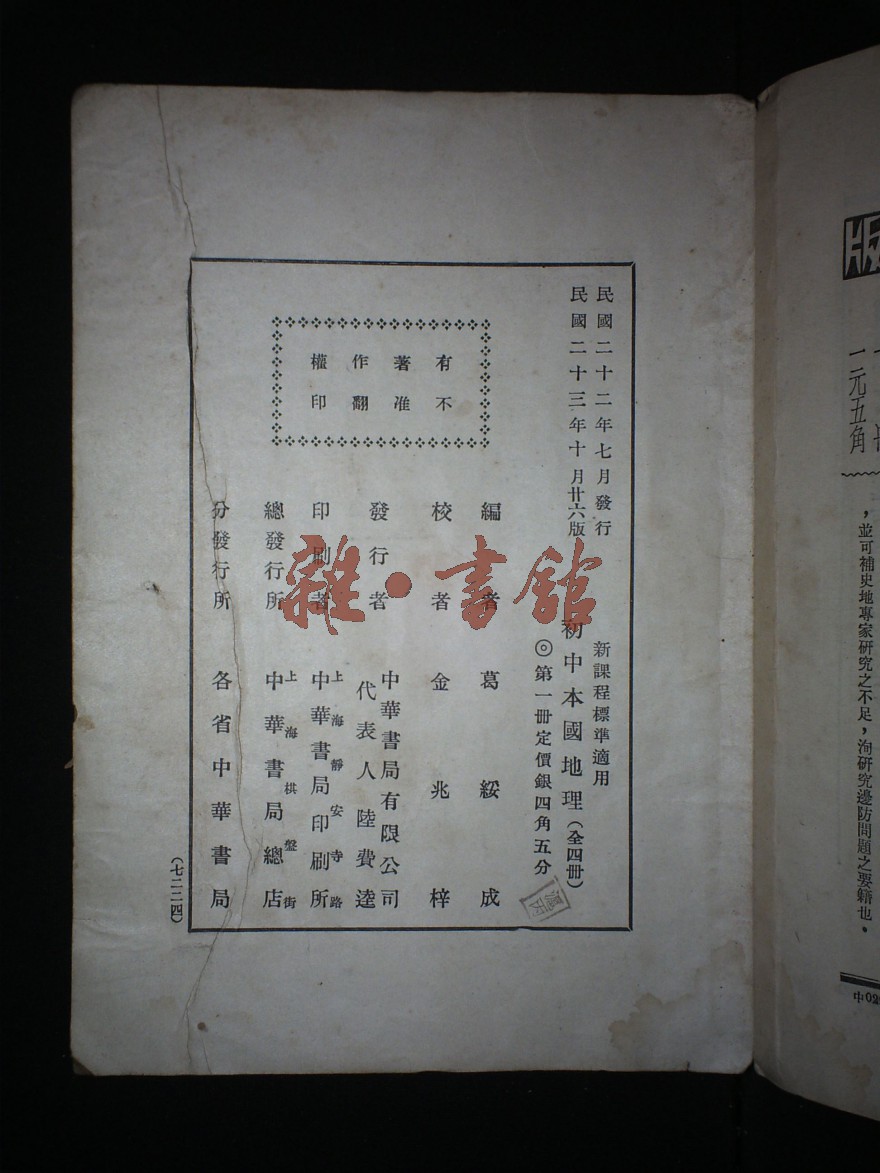 民國二十二年七月發行
民國二十三年十月廿六版
新課程標準適用
初中本國地理（全四册）
◎第一册定價銀四角五分
有著作權
不准翻印
編者 葛綏成
校者 金兆梓
發行者 中華書局有限公司
代表人 陸費逵
印刷者 上海靜安寺路
中華書局印刷所
總發行所 上海棋盤街
中華書局總店
分發行所 各省中華書局
（七二二四）
雜·書館
版
一元五角
，並可補史地專家研究之不足，洵研究邊防問題之要籍也。